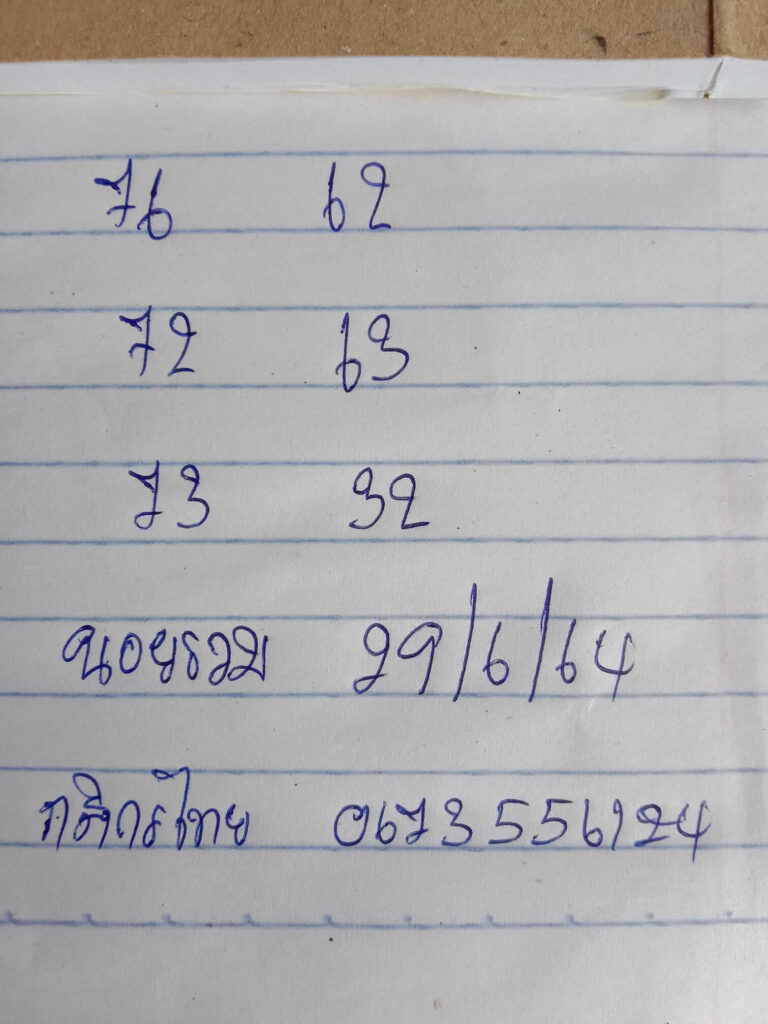 76 62
72 63
73 32
ฉอยรวม 29/6/64
กสิกรไทย 0673556124